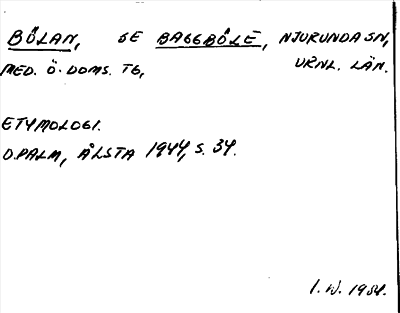 BÖLAN, SE BAGGBÖLE, NJURUNDA SN,
MED. Ö. DOMS. TG, VRNL. LÄN.
ETYMOLOGI.
D.PALM, ÅLSTA 1944, S. 34.
I. W. 1984.